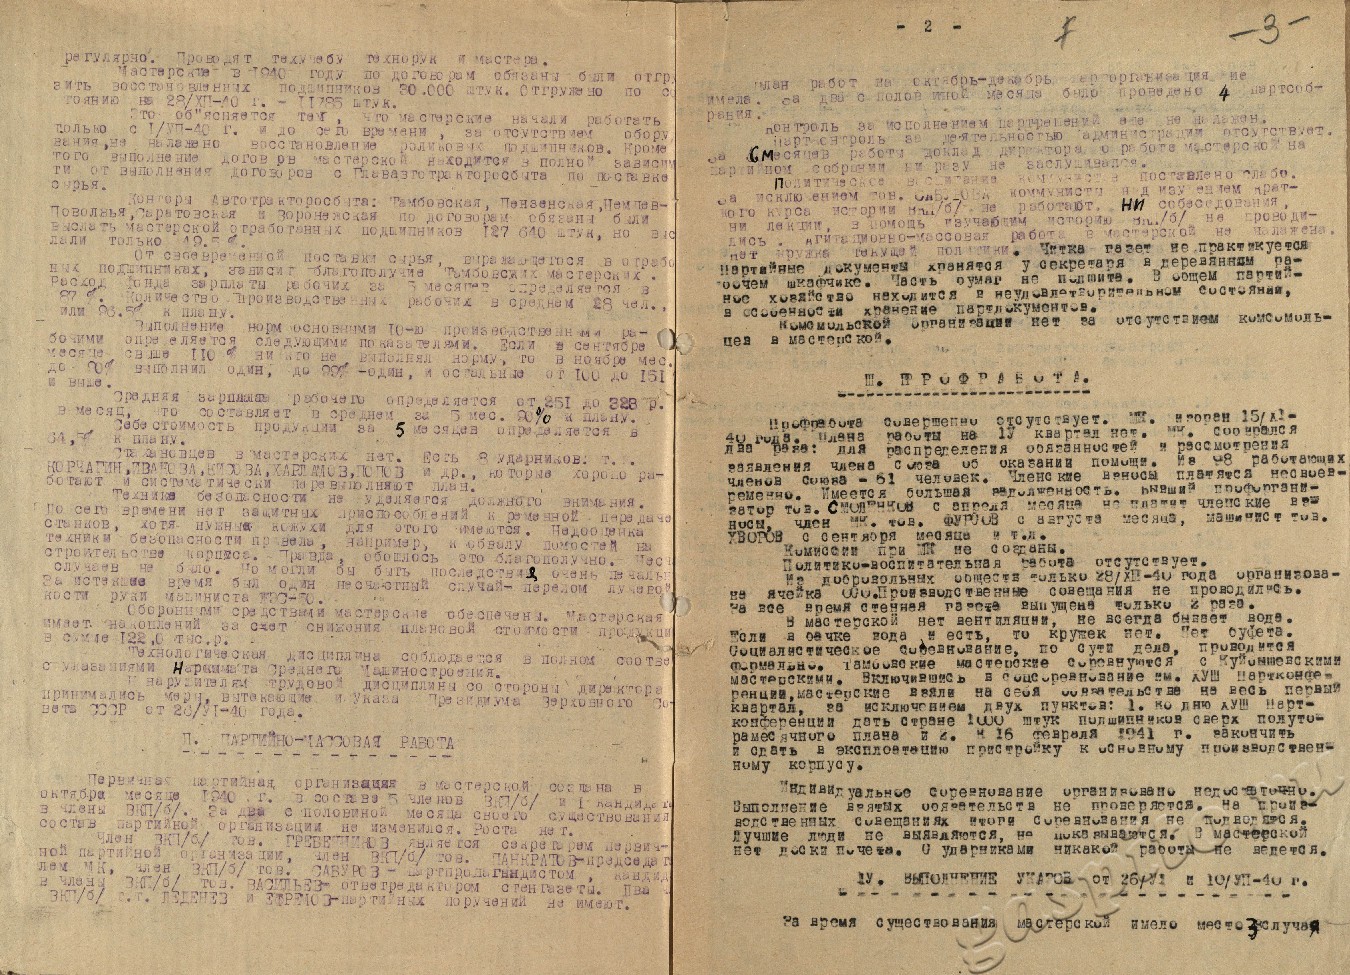 регулярно. Проводят техучебу технорук и мастера.
Мастерские в 1940 году по договорам обязаны были отгру
зить восстановленных подшипников 30.000 штук. Отгружено по со
тоянию на 28/ХП-40 г. - 11785 штук.
Это об"ясняется тем, что мастерские начали работать
только с I/УП-40 г. и до сего времени, за отсутствием обору
вания, не налажено восстановление роликовых подшипников. Кроме
того выполнение договоров мастерской находится в полной зависим
ти от выполнения договоров с Глававтотракторосбыта по поставке
сырья.
Конторы Автотракторосбыта: Тамбовская, Пензенская, Немцев-
Поволжья, Саратовская и Воронежская по договорам обязаны были
выслать мастерской отработанных подшипников 127 640 штук, но выс
лали только
От своевременной поставки сырья, выражающегося в отрабо
ных подшипниках, зависит благополучие Тамбовских мастерских.
Расход фонда зарплаты рабочих за 5 месяцев определяется в
Количество производственных рабочих в среднем 28 чел.,
или к плану.
Выполнение норм основными 10-ю производственными ра-
бочими определяется следующими показателями. Если в сентябре
месяце свыше 110 % никто не выполнял норму, то в ноябре мес.
до 90% выполнил один, до 99% -один, и остальные от 100 до 151
и выше.
Средняя зарплата рабочего определяется от 251 до 328 р.
в месяц, что составляет в среднем за 5 мес. 90% к плану.
Себестоимость продукции за 5 месяцев определяется в
к плану.
Стахановцев в мастерских нет. Есть 8 ударников: т.т.
КОРЧАГИН, ИВАНОВА, ПОПОВ и др., которые хорошо ра-
ботают и систематически перевыполняют план.
Технике безопасности не уделяется должного внимания.
До сего времени нет защитных приспособлений к ременной передаче
станков, хотя нужные кожухи для этого имеются. Недооценка
техники безопасности привела, например, к обвалу помостей на
строительстве корпуса. Правда, обошлось это благополучно. Несч
случаев не было. Но могли бы быть последствия очень печальн
За истекшее время был один несчастный случай- перелом лучевой
кости руки машиниста
Оборонными средствами мастерские обеспечены. Мастерская
имеет накоплений за счет снижения плановой стоимости продукци
в сумме 122,0 тыс.р.
Технологическая дисциплина соблюдается в полном соотве
с указаниями Наркомата Среднего Машиностроения.
К нарушителям трудовой дисциплины со стороны директора
принимались меры, вытекающие из Указа Президиума Верховного Со-
вета СССР от 26/УI-40 года.
П. ПАРТИЙНО-МАССОВАЯ РАБОТА
Первичная партийная организация в мастерской создана в
октябре месяце 1940 г. в составе 5 членов ВКП/б/ и 1 кандидат
в члены ВКП/б/. За два с половиной месяца своего существования
состав партийной организации не изменился. Роста нет.
Член ВКП/б/ тов. ГРЕБЕННИКОВ является секретарем первич-
ной партийной организации, член ВКП/б/ тов. ПАНКРАТОВ-председат
лем МК, член ВКП/б/ тов. САБУРОВ - партпропагандистом, кандид
в члены ВКП/б/ тов. ВАСИЛЬЕВ- ответредактором стенгазеты. Два ч
ВКП/б/ т.т. ЛЕДЕНЕВ и ЕФРЕМОВ-партийных поручений не имеют.
- 2 -
-3-
План работ на октябрь-декабрь парторганизация не
имела. За два с половиной месяца было проведено 4 партсоб-
рания.
Контроль за исполнением партрешений еще не налажен.
Партконтроль за деятельностью администрации отсутствует.
За 6 месяцев работы доклад директора о работе мастерской на
партийном собрании ни разу не заслушивался.
Политическое воспитание коммунистов поставлено слабо.
За исключением тов. коммунисты над изучением крат-
кого курса истории ВКП/б/ не работают. НИ собеседования,
ни лекции, в помощь изучающим историю ВКП/б/ не проводи-
лись. Агитационно-массовая работа в мастерской не налажена.
Нет кружка текущей политики. Читка газет не практикуется
Партийные документы хранятся у секретаря в деревянным ра-
бочем шкафчике. Часть бумаг не подшита. В общем партий-
ное хозяйство находится в неудовлетворительном состоянии,
в особенности хранение партдокументов.
Комсомольской организации нет за отсутствием комсомоль-
цев в мастерской.
Ш. ПРОФРАБОТА.
Профработа совершенно отсутствует. МК. избран 15/XI-
40 года. Плана работы на 1У квартал нет. МК. собирался
два раза: для распределения обязанностей и рассмотрения
заявления члена Союза об оказании помощи. Из 98 работающих
членов Союза - 51 человек. Членские взносы платятся несвоев-
ременно. Имеется большая задолженность. Бывший профоргани-
затор тов. СМОЛЕНКОВ с апреля месяца не платит членские вз-
носы, член МК. тов. ФУРСОВ с августа месяца, машинист тов.
УВОРОВ с сентября месяца и т.д.
Комиссии при МК не созданы.
Политико-воспитательная работа отсутствует.
Из добровольных обществ только 28/ХП-40 года организова-
на ячейка ОСО. Производственные совещания не проводились.
За все время стенная газета выпущена только 2 раза.
В мастерской нет вентиляции, не всегда бывает вода.
Если в бачке вода и есть, то кружек нет. Нет буфета.
Социалистическое соревнование, по сути дела, проводится
формально. Тамбовские мастерские соревнуются с Куйбышевскими
мастерскими. Включившись в соцсоревнование им. ХУШ Партконфе-
ренции, мастерские взяли на себя обязательства на весь первый
квартал, за исключением двух пунктов: 1. Ко дню ХУШ Парт-
конференции дать стране 1000 штук подшипников сверх полуто-
рамесячного плана и 2. К 16 февраля 1941 г. закончить
и сдать в эксплоатацию пристройку к основному производствен-
ному корпусу.
Индивидуальное соревнование организовано недостаточно.
Выполнение взятых обязательств не проверяется. На произ-
водственных совещаниях итоги соревнования не подводятся.
Лучшие люди не выявляются, не показываются. В мастерской
нет доски почета. С ударниками никакой работы не ведется.
1У. ВЫПОЛНЕНИЕ УКАЗОВ от 26/УI и 10/УП-40 г.
За время существования мастерской имело место 3 случая